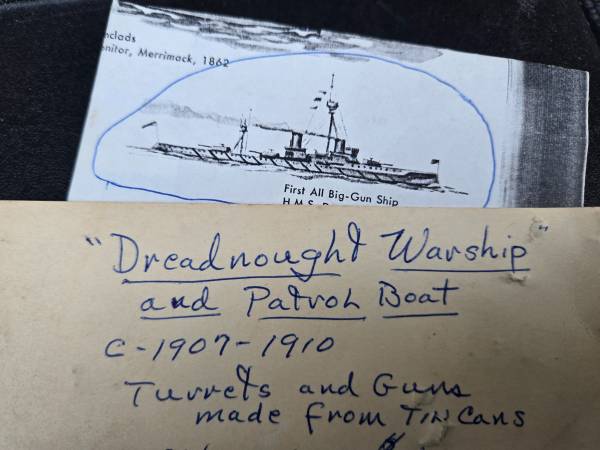 nclads
nitor, Merrimack, 1862
First All Big-Gun Ship
H.M.S.
"Dreadnought Warship"
and Patrol Boat
C-1907-1910
Turrets and Guns
made from Tin Cans